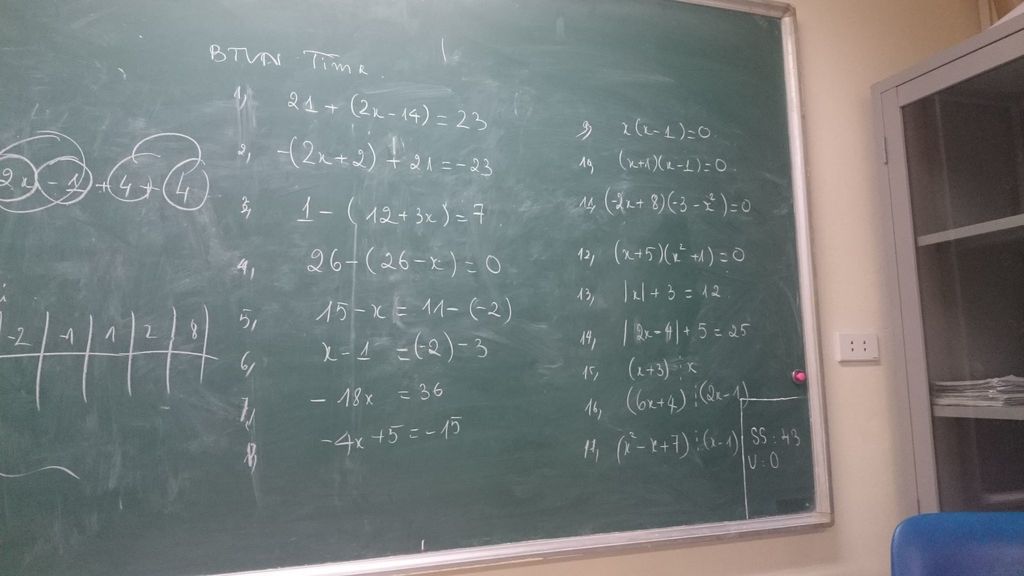 BTVN Time
2x - 1 + 4 + 4
-2 -1 1 2 8
1, 21 + (2x - 14) = 23
2, -(2x + 2) + 21 = -23
3, 1 - (12 + 3x) = 7
4, 26 - (26 - x) = 0
5, 15 - x = 11 - (-2)
6, x - 1 = (-2) - 3
7, - 18x = 36
8, -4x + 5 = -15
9, x(x - 1) = 0
10, (x+1)(x-1) = 0
11, (-2x + 8)(-3 - x²) = 0
12, (x+5)(x² + 1) = 0
13, |x| + 3 = 12
14, |2x - 4| + 5 = 25
15, (x+3) ⋮ x
16, (6x + 4) ⋮ (2x - 1)
17, (x² - x + 7) ⋮ (x - 1)
SS : 43
V : 0